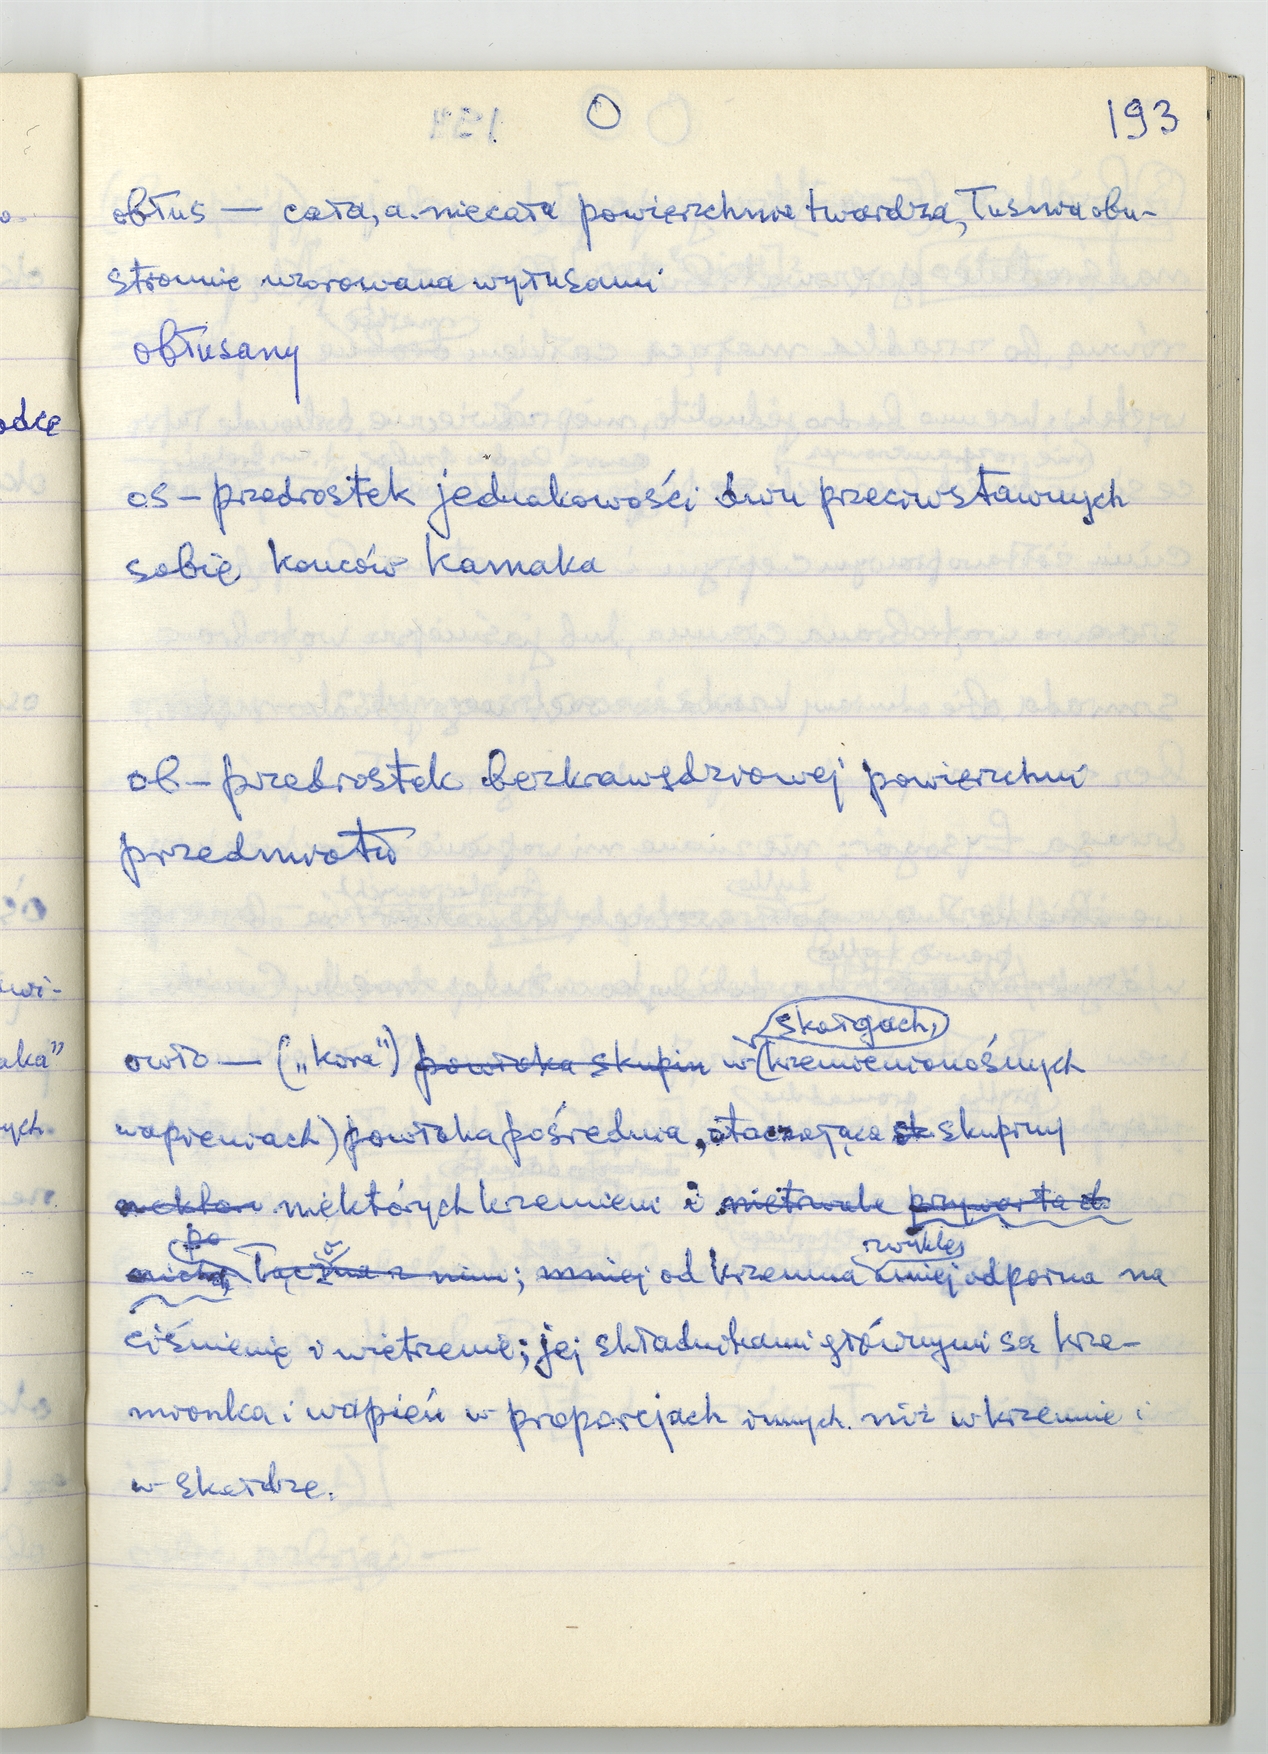 O
193
obłus — cała, a niecała powierzchnia twardza, łusnia obu-
stronnie wzorowana wyłusami
obłusany
os – przedrostek jednakowości dwu przeciwstawnych
sobie końców kamaka
ob – przedrostek bezkrawędziowej powierzchni
przedmiotu
skałgach,
owło — („kora”) powłoka skupin w (krzemienionośnych
wapieniach) powłoka pośrednia, otaczająca sk skupiny
niektórych krzemieni i nietrwale przywarta d
po zwykle
łączna z nim; mniej od krzemia mniej odporna na
ciśnienie i wietrzenie; jej składnikami głównymi są krze-
mionka i wapień w proporcjach innych niż w krzemie i
w skałdze.
odcę
wi-
aka”
ych